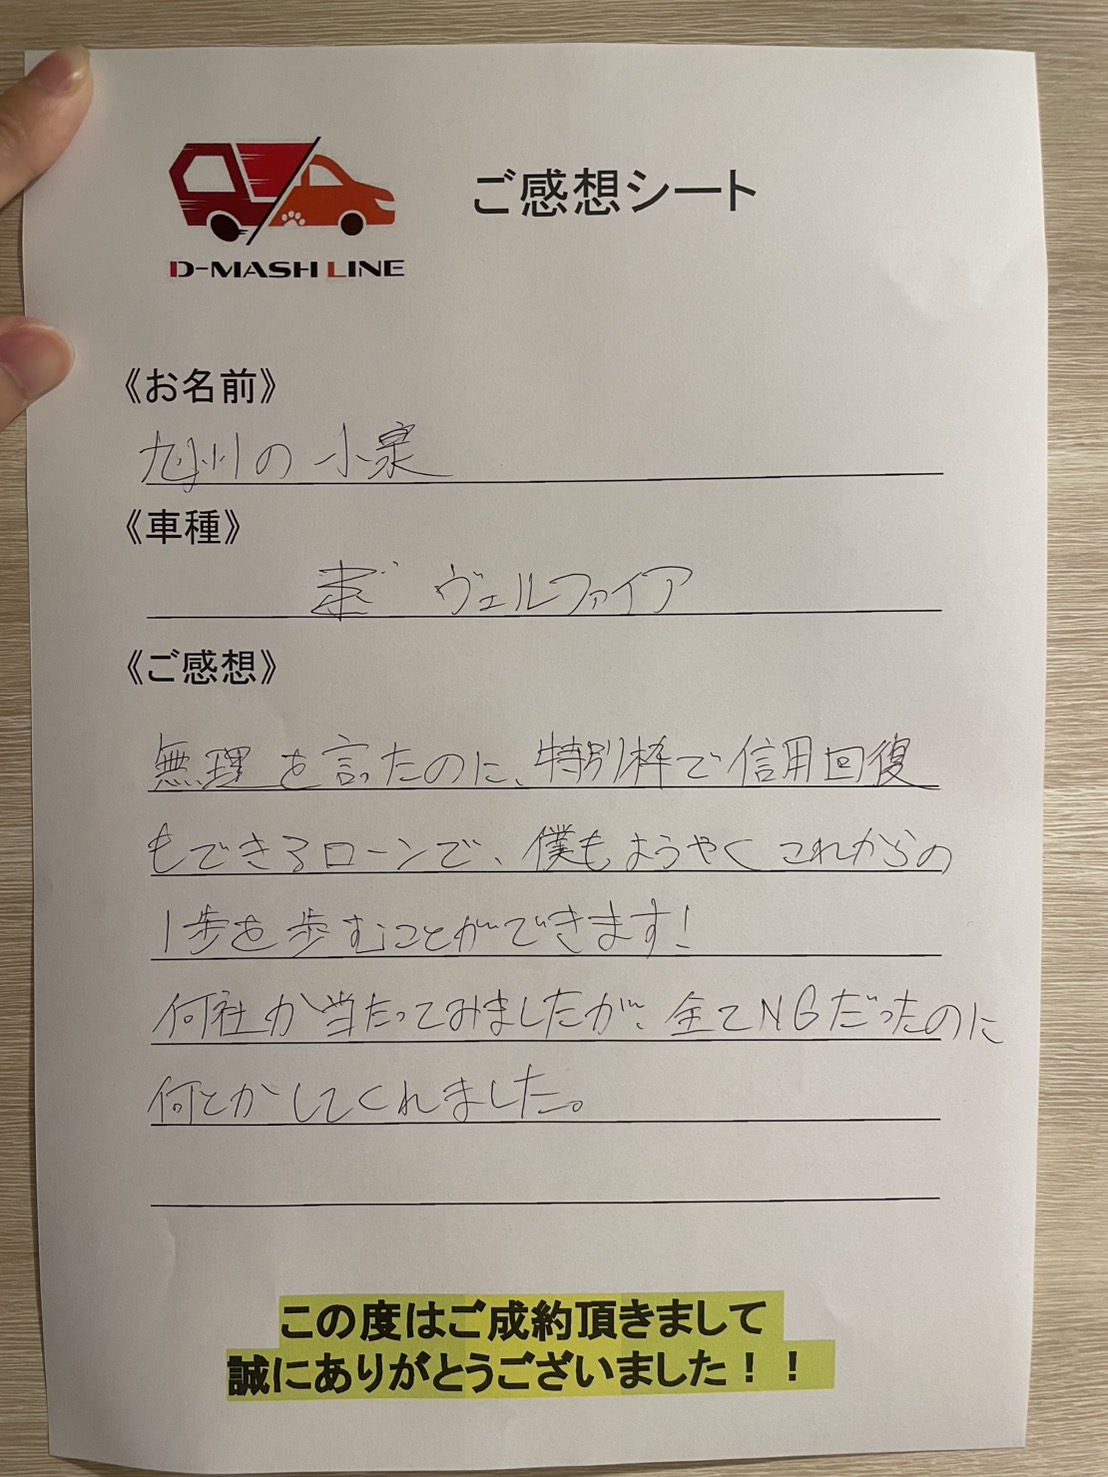 D-MASH LINE
ご感想シート
《お名前》
九州の小泉
《車種》
ヴェルファイア
《ご感想》
無理を言ったのに、特別枠で信用回復
もできるローンで、僕もようやくこれからの
1歩を歩むことができます!
何社か当たってみましたが、全てNGだったのに
何とかしてくれました。
この度はご成約頂きまして
誠にありがとうございました！！